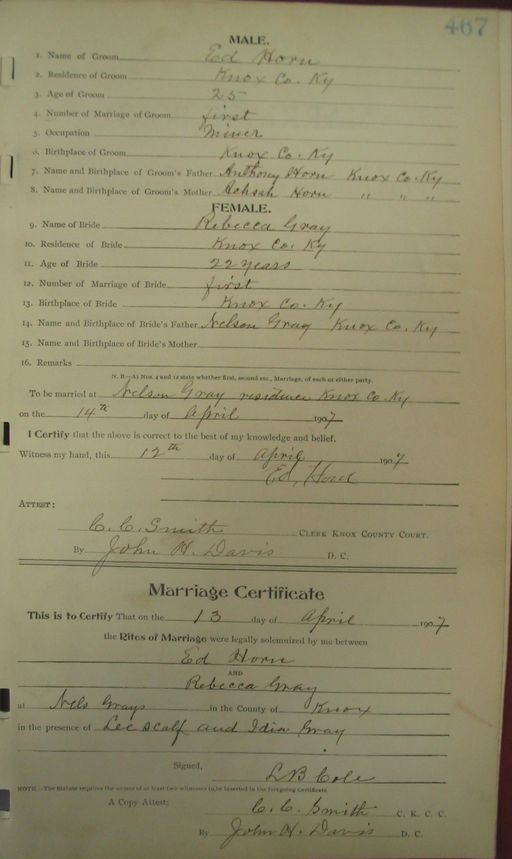 467
MALE.
1. Name of Groom Ed Horn
2. Residence of Groom Knox Co. Ky
3. Age of Groom 25
4. Number of Marriage of Groom first
5. Occupation Miner
6. Birthplace of Groom Knox Co. Ky
7. Name and Birthplace of Groom's Father Anthony Horn Knox Co. Ky
8. Name and Birthplace of Groom's Mother Achsah Horn " " "
FEMALE.
9. Name of Bride Rebecca Gray
10. Residence of Bride Knox Co. Ky
11. Age of Bride 22 years
12. Number of Marriage of Bride first
13. Birthplace of Bride Knox Co. Ky
14. Name and Birthplace of Bride's Father Nelson Gray Knox Co. Ky
15. Name and Birthplace of Bride's Mother
16. Remarks
N. B.—At Nos. 4 and 12 state whether first, second etc., Marriage, of each or either party.
To be married at Nelson Gray residence Knox Co. Ky
on the 14th day of April 1907
I Certify that the above is correct to the best of my knowledge and belief.
Witness my hand, this 12th day of April 1907
Ed,
ATTEST:
C. C. Smith CLERK KNOX COUNTY COURT.
By John H. Davis D. C.
Marriage Certificate
This is to Certify That on the 13 day of April 1907
the Rites of Marriage were legally solemnized by me between
Ed Horn
AND
Rebecca Gray
at Nels Grays in the County of Knox
in the presence of Lee Scalf and Idia Gray
Signed,
L B Cole
NOTE.—The Statute requires the names of at least two witnesses to be inserted in the foregoing Certificate.
A Copy Attest; C. C. Smith C. K. C. C.
By John H. Davis D. C.